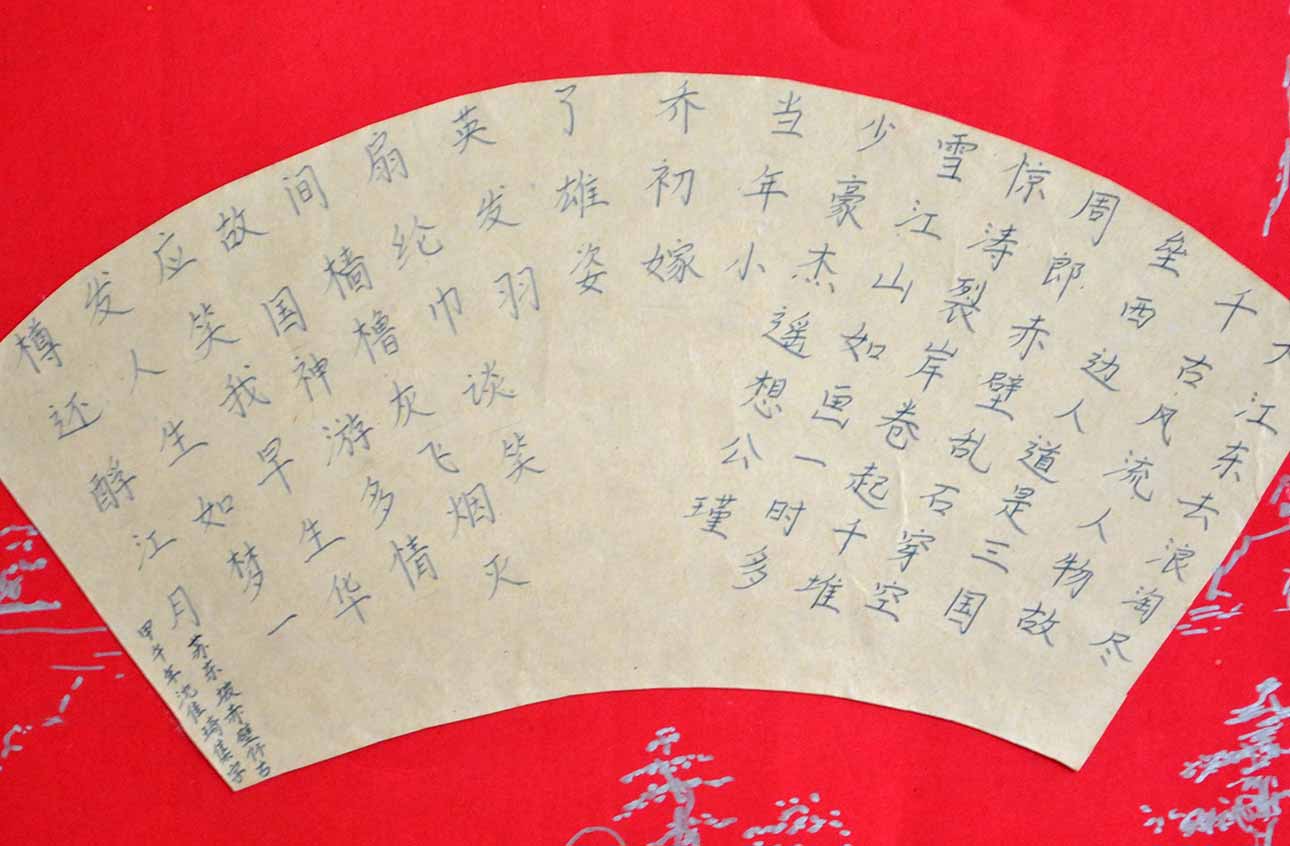 大江东去浪淘尽
千古风流人物故
垒西边人道是三国
周郎赤壁乱石穿空
惊涛裂岸卷起千堆
雪江山如画一时多
少豪杰遥想公瑾
当年小
乔初嫁
了雄姿
英发羽
扇纶巾谈笑
间樯橹灰飞烟灭
故国神游多情
应笑我早生华
发人生如梦一
樽还酹江月
苏东坡赤壁怀古
甲午年沈佳琦集字